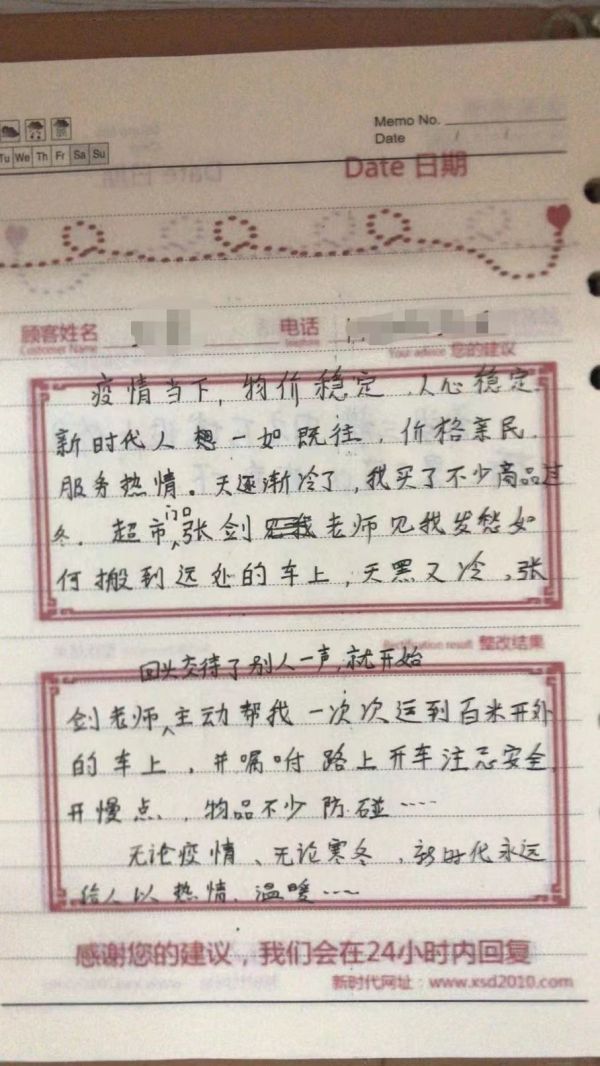 Memo No.
Date / /
Tu We Th Fr Sa Su
Date 日期
顾客姓名 电话
Customer Name
Your advice 您的建议
疫情当下，物价稳定，人心稳定
新时代人想一如既往，价格亲民，
服务热情。天逐渐冷了，我买了不少商品过
冬。超市门口张剑老师见我发愁如
何搬到远处的车上，天黑又冷，张
Rectification result 整改结果
回头交待了别人一声，就开始
剑老师主动帮我一次次运到百米开外
的车上，并嘱咐路上开车注意安全，
开慢点，物品不少防碰……
无论疫情、无论寒冬，新时代永远
给人以热情、温暖……
感谢您的建议，我们会在24小时内回复
新时代网址：www.xsd2010.com